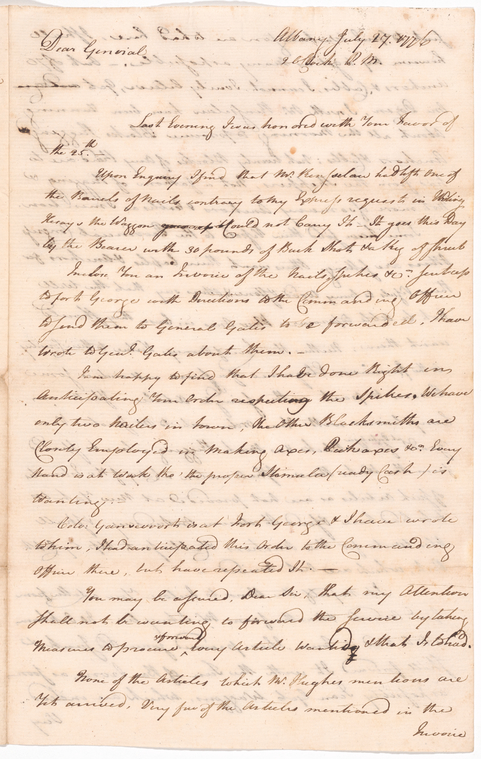 Albany July 27. 1776
2 oClock P.M.
Dear General
Last Evening I was honored with Your Favor of
the 25th
Upon Enquiry I find that Mr. Renselaer had left One of
the Barrels of Nails contrary to My Express requests in Writing
He says the Waggon could not Carry It. It goes this Day
by the Bearer with 30 pounds of Buck Shot & a Keg of Shrub
Inclose You an Invoice of the Nails Spikes &ca. sent up
to fort George with Directions to the Commanding Officer
to send them to General Gates to be forwarded. I have
wrote to Genl. Gates about them. —
I am happy to find that I have done Right in
Anticipating Your Order respecting the Spikes. We have
only two Nailers in Town, the other Blacksmiths are
Closely Employed in Making Axes, &ca. Every
Hand is at Work tho' the proper Stimula (ready Cash) is
Wanting.
Colo. Gansevoort is at Fort George & I have wrote
to him, I had anticipated this Order to the Commanding
Officer there, but have repeated It. —
You may be assured, Dear Sir, that my Attention
Shall not be wanting to forward the Service by taking
Measures to procure & forward every Article Wanted & that Is to be had.
None of the Articles which Mr. Hughes mentions are
Yet arrived. Very few of the Articles mentioned in the
Invoice